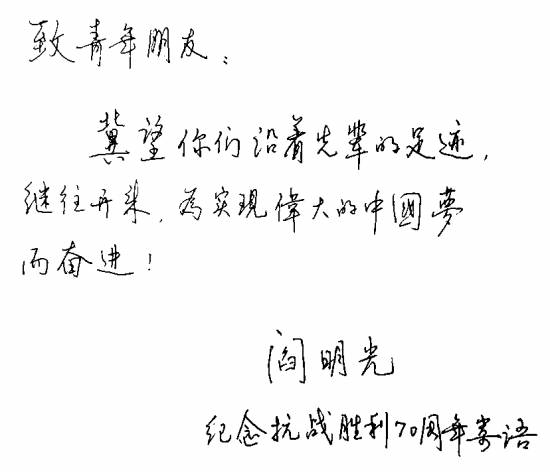 致青年朋友:
冀望你们沿着先辈的足迹,
继往开来,为实现偉大的中國夢
而奋进!
阎明光
纪念抗战胜利70周年寄语